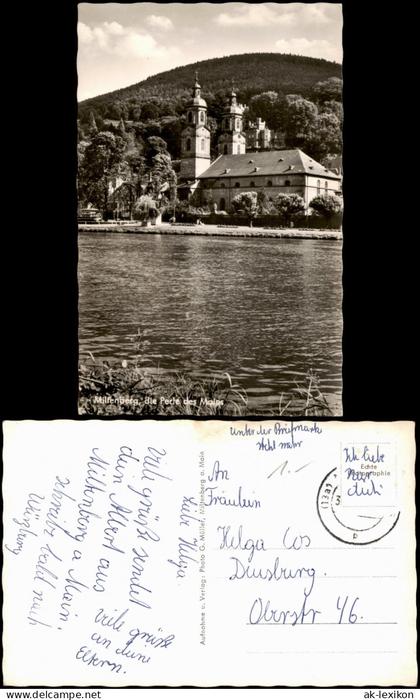 Miltenberg, die Perle des Mains
unter der Briefmark
steht mehr
Ich liebe
nur
dich
Echte
Photographie
1.-
An
Fräulein
Helga Cos
Duisburg.
Oberstr 46.
Aufnahme u. Verlag: Photo G. Müller, Miltenberg a. Main
Liebe Helga.
Viel grüße sendet
dein Albert aus
Miltenberg a Main.
schreibt bald nach
Würzburg
viele grüß
an deine
Eltern.
ak-lexikon.com